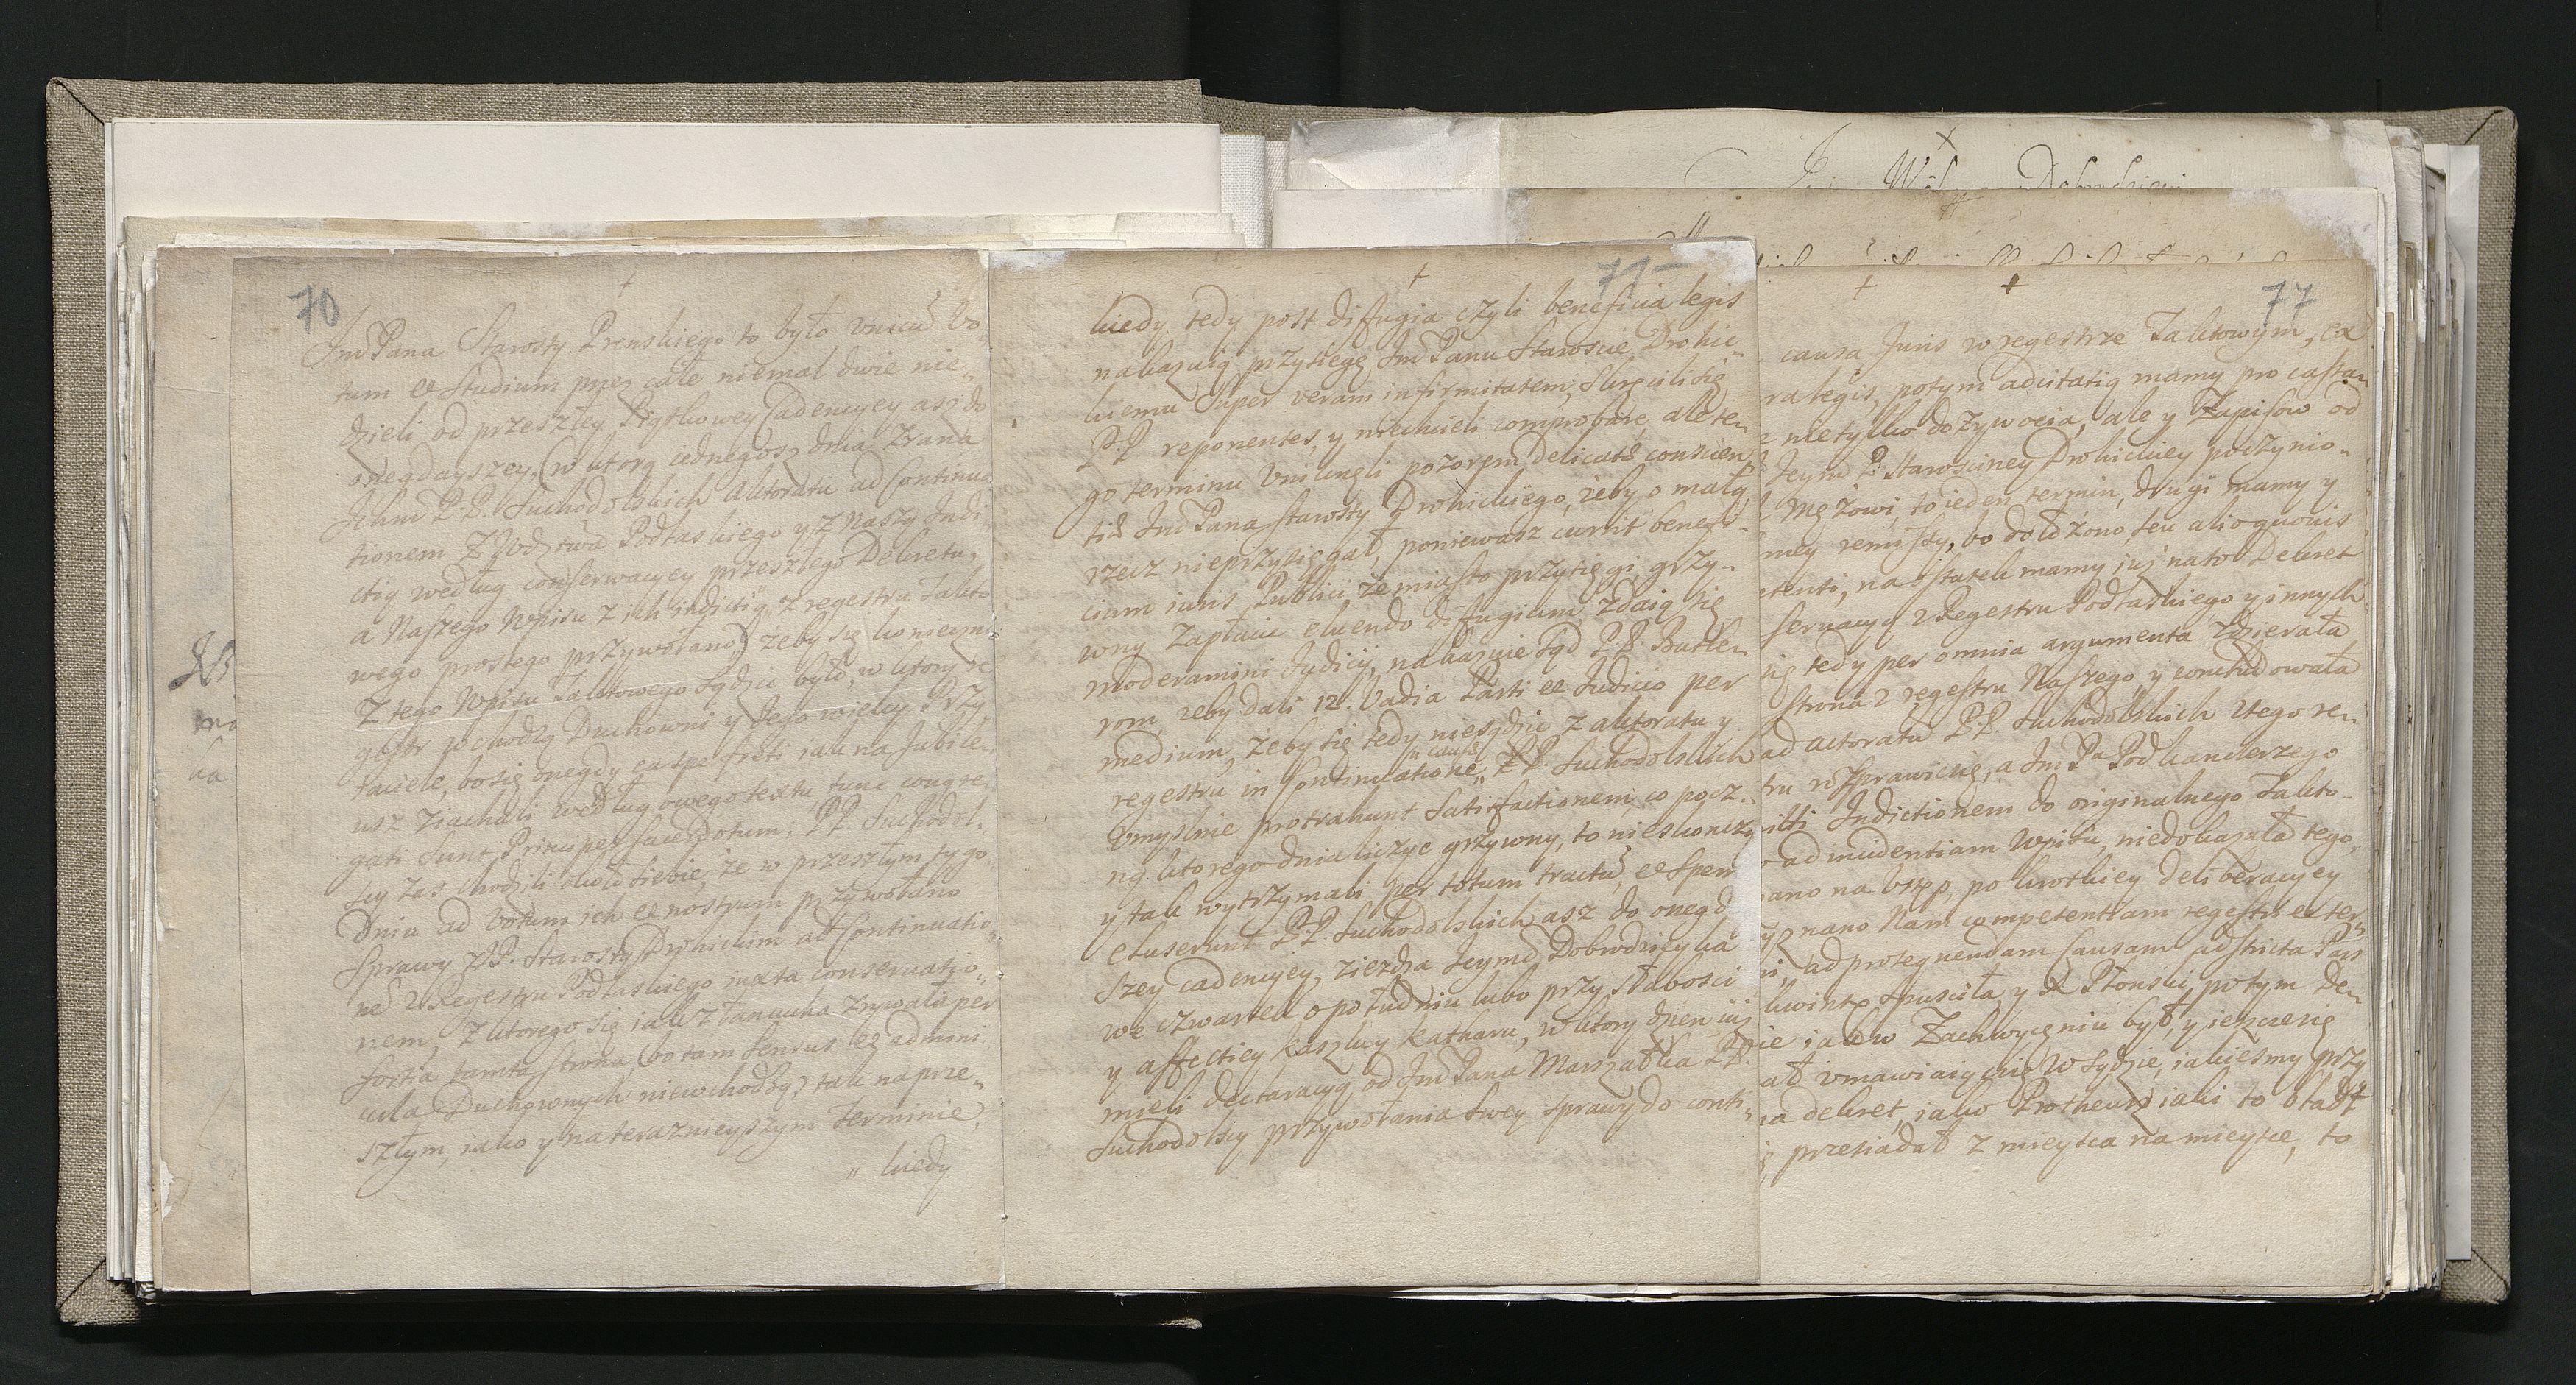 70
Jmci Pana Starosty Prenskiego to było unicum vo
tum et Studium przez całe niemal dwie nie„
dzieli od przeszłey Piątkowey Cadencyey asz do
onegdayszey, (w ktorą iednegosz dnia zrana
Jchm P.P. Suchodolskich Aktoratu ad Continua
tionem Z Wodztwa Podlaskiego y z Naszą Indi
ctią według conserwacyey przeszłego Dekretu,
a Naszego Wpisu z ich indictią z regestru Takto
wego prostego przywołano) żeby się koniecznie
Z tego Wpisu Taktowego sądzic było, w ktory re
gestr wchodzą Duchowni y Jego wielcy Przy
iaciele, bo się onegdy ea spe freti iak na Jubile„
usz ziachali według owego textu tunc congre
gati sunt Principes sacerdotum; P.P. Suchodol„
scy zas chodzili około siebie, że w przeszłym tygo
dniu ad votum ich et nostrum przywołano
Sprawy z P. Starostą Drohickim ad Continuatio„
nem z Regestru Podlaskiego iuxta conservatio„
nem, z ktorego się iak z łancucha zrywała per
fortia tamta strona, (bo tam sensus et admini
cula Duchownych niewchodzą) tak na prze„
szłym, iako y na teraznieyszym Terminie,
„ kiedy
71
kiedy tedy post diffugia czyli beneficia legis
nakazuią przysięgę Jm Panu Staroscie Drohic„
kiemu super veram infirmitatem, skrzcili się
P.P. reponentes, y niechcieli comprobare, ale te„
go terminu uniknęli pozorem delicatae conscien
tiae Jm Pana Starosty Drohickiego, żeby o małą
rzecz nieprzysięgał, poniewasz currit benefi„
cium iuris Publici że miasto przysięgi grzy„
wny zapłacic eluendo diffugium, zdaią się
moderamini Judicij, nakazuie Sąd P.P. Butle„
rom, żeby dali 12. Vadia Parti et Judicio per
medium, żeby się tedy niesądzic z aktoratu y
regestru in Continuatione „causae„ P.P. Suchodolskich
umyslnie protrahunt satisfactionem, co pocz„
ną. ktorego dnia liczyc grzywny, to nieskonczą
y tak wytrzymali per totum tractum, et spem
eluserunt P.P. Suchodolskich, asz do onegd
szey cadencyey, ziezdza Jeymc Dobrodzieyka
we czwartek o południu lubo przy słabosci
y affectiey kaszlu y katharu, w ktory dzien iuż
mieli declaracyą od Jm Pana Marszałka P.P.
Suchodolscy przywołania swey sprawy do conti„
77
causa Juris w regestrze Taktowym, ex
ra legis, potym adcitatią mamy pro cassan
nietylko dożywocia, ale y Zapisow od
Jeym P. Starosciney Drohickiey poczynio„
Mężowi, to ieden termin, drugi mamy y
mey remissy, bo dołożono, seu alio quouis
etenti, na ostatek mamy iuż na to Dekret
servacyą z Regestru Podlaskiego y innych
się tedy per omnia argumenta zdzierała
strona z regestru Naszego, y concludowała
ad actoratum P.P. Suchodolskich z tego re„
tru rosprawic się, a Jm Pa Podkanclerzego
Indictionem do originalnego Takto„
ad incidentiam Wpisu, niedokazała tego,
ano na ustęp, po krotkiey deliberacyey
znano Nam competentiam regestri et ter„
ni, ad prosequendam Causam adstricta Pars
spusciła, y X Płonski, potym De„
ie iak w Zachwyceniu był, y ieszcze się
ał vmawiaiąc się w Sądzie, iakiesmy przy
na dekret, iako Protheusz iaki to bladł
przesiadał z mieysca na mieysce, to